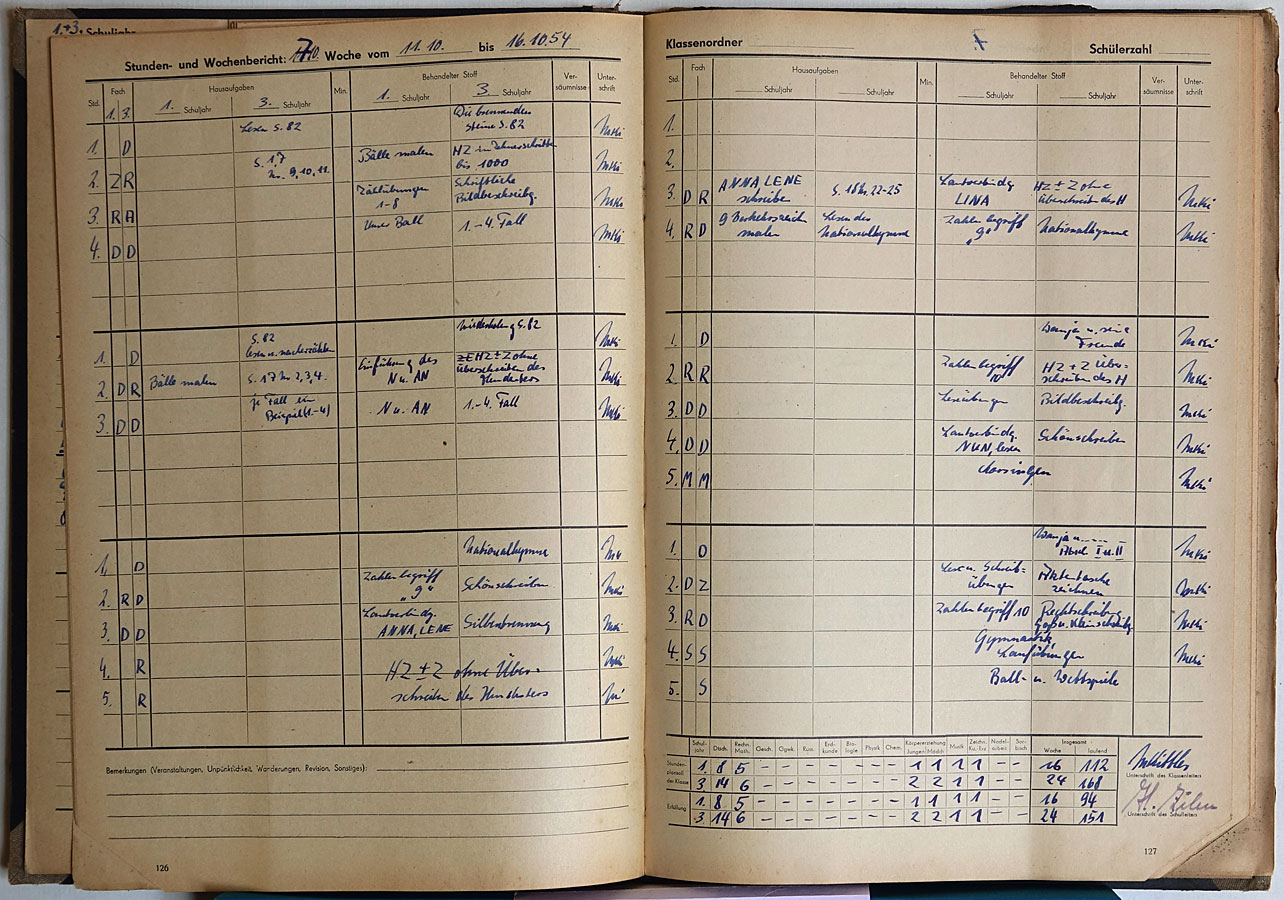 1.+3. Schuljahr
Stunden- und Wochenbericht: 7. Woche vom 11.10. bis 16.10.54
Std. Fach Hausaufgaben Min. Behandelter Stoff Ver-säumnisse Unter-schrift
1. 3. 1. Schuljahr 3. Schuljahr 1. Schuljahr 3 Schuljahr
Die brennenden
Lesen S. 82 Steine S. 82
1. D
S. 17 Bälle malen HZ in Zehnerschritten
Nr. 9, 10, 11. bis 1000
2. Z R
Zählübungen Schriftliche
1-8 Bildbeschreibg.
3. R A
Unser Ball 1.-4. Fall
4. D D
S. 82 Wiederholung S. 82
lesen u. nacherzählen
1. D
Bälle malen S. 17 Nr. 2, 3, 4. Einführung des HZ ± Z ohne
N u. AN Überschreiten des
Hunderters
2. D R
je Fall ein
Beispiel (1.-4) N u. AN 1.-4. Fall
3. D D
Nationalhymne
1. D
Zahlenbegriff Schönschreiben
"9"
2. R D
Lautverbindg. Silbentrennung
ANNA, LENE
3. D D
4. R
HZ ± Z ohne Über-
5. R
schreiten des Hunderters
Bemerkungen (Veranstaltungen, Unpünktlichkeit, Wanderungen, Revision, Sonstiges):
126
Klassenordner 7. Schülerzahl
Std. Fach Hausaufgaben Min. Behandelter Stoff Ver-säumnisse Unter-schrift
Schuljahr Schuljahr Schuljahr Schuljahr
1.
2.
3. D R ANNA, LENE S. 18 Nr. 22-25 Lautverbindg. HZ ± Z ohne
schreiben LINA Überschreiten des H
4. R D 9 Verkehrszeichen Lesen der Zahlenbegriff Nationalhymne
malen Nationalhymne "9"
1. D Wanja u. seine
Freunde
2. R R Zahlenbegriff HZ ± Z Über-
10 schreiten des H
3. D D Leseübungen Bildbeschreibg.
4. D D Lautverbindg. Schönschreiben
NUN, lesen
5. M M Chorsingen
1. D Wanja u.
Absch. I u. II
2. D Z Lese u. Schreib= Aktentasche
übungen zeichnen
3. R D Zahlenbegriff 10 Rechtschreibung
Groß u. Kleinschreibg.
4. S S Gymnastik
Laufübungen
5. S Ball- u. Wettspiele
Schul-jahr Dtsch. Rechn. Math. Gesch. Ggwk. Russ. Erd-kunde Bio-logie Physik Chem. Körpererziehung Jungen Mädch. Musik Zeichn. Ku. Erz. Nadel-arbeit Sor-bisch Insgesamt Woche laufend
Stunden-plansoll der Klasse 1. 8 5 – – – – – – – 1 1 1 1 – – 16 112
3 14 6 – – – – – – – 2 2 1 1 – – 24 168
Unterschrift des Klassenleiters
Erfüllung 1. 8 5 – – – – – – – 1 1 1 1 – – 16 94
3. 14 6 – – – – – – – 2 2 1 1 – – 24 151
Unterschrift des Schulleiters
127